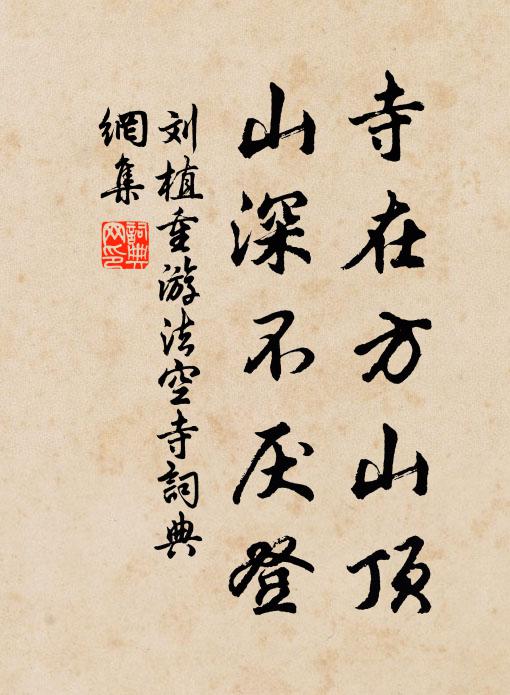 寺在方山顶
山深不厌登
刘植重游法空寺詞典
網集
詞典
网印